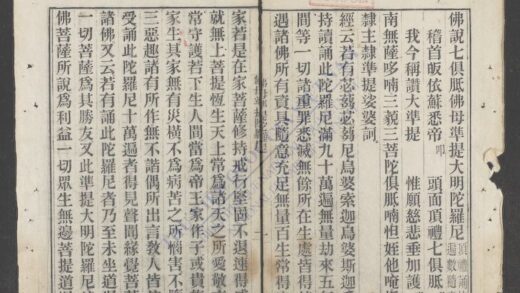 佛說七俱胝佛母準提大明陀羅尼 頂禮誦
遍數隨
稽首皈依蘇悉帝 頭面頂禮七俱胝
我今稱讚大準提 惟願慈悲垂加護
南無薩哆喃三藐三菩陀俱胝喃怛姪他唵
隸主隸準提娑婆訶
經云若有苾芻苾芻尼烏婆索迦烏婆斯迦
持讀誦此陀羅尼滿九十萬遍無量劫來五
間等一切諸重罪悉滅無餘所在生處皆得
遇諸佛所有資具隨意充足無量百生常得
家若是在家菩薩修持戒行堅固不退速得
就無上菩提恆生天上常爲諸天之所愛敬
常守護若下生人間當爲帝王家作子或貴
家生其家無有災橫不爲病苦之所惱害不
三惡趣諸有所作無不諧偶所出言教人皆
受誦此陀羅尼十萬遍者得見聲聞緣覺菩
諸佛又云若有誦此陀羅尼者乃至未坐道
一切菩薩爲其勝友又此準提大明陀羅尼
佛菩薩所說爲利益一切眾生無邊菩提道